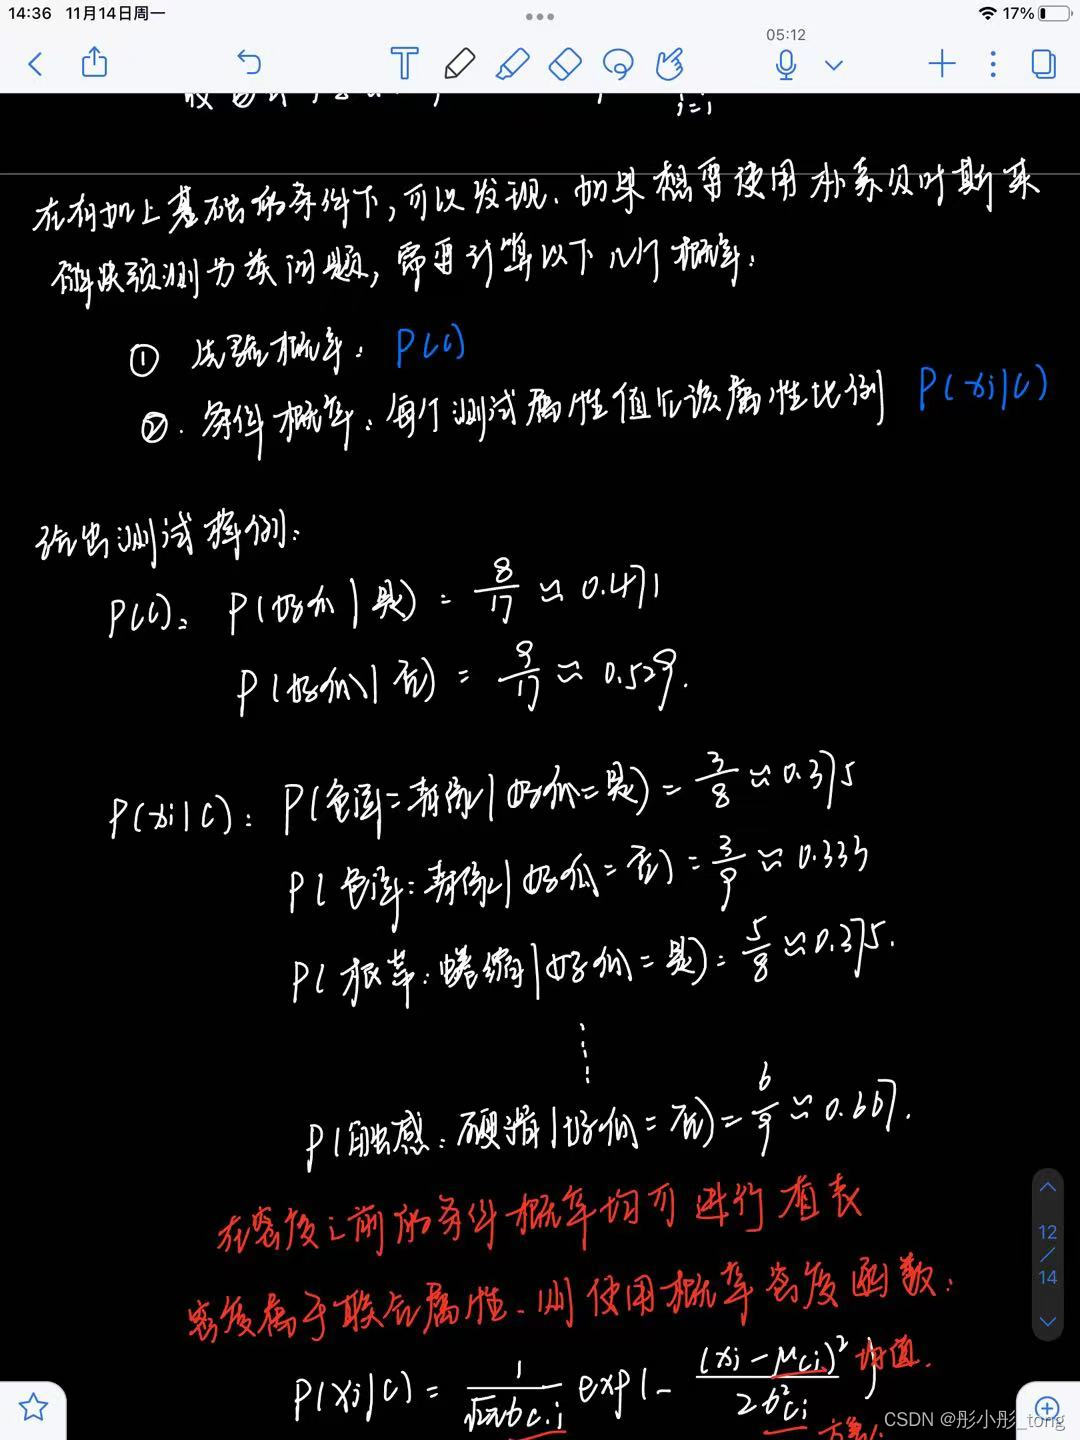 14:36 11月14日周一
17%
05:12
i=i
在有如上基础的条件下,可以发现.如果想要使用朴素贝叶斯来
解决预测分类问题,需要计算以下几个概率:
① 先验概率: P(c)
②. 条件概率:每个测试属性值在该属性比例 P(xi|c)
给出测试样例:
P(c): P(好瓜|是) = 8/17 ≈ 0.471
P(好瓜|否) = 9/17 ≈ 0.529.
P(xi|c): P(色泽=青绿|好瓜=是) = 3/8 ≈ 0.375
P(色泽:青绿|好瓜=否) = 3/9 ≈ 0.333
P(根蒂:蜷缩|好瓜=是) = 5/8 ≈ 0.375.
P(触感:硬滑|好瓜=否) = 6/9 ≈ 0.667.
在密度之前的条件概率均可进行查表
密度属于联合属性、则使用概率密度函数:
P(xi|c) = 1/√2πσc,i exp(- (xi-μci)²/2σ²ci) 均值.
方差
12
/
14
CSDN @彤小彤_tong